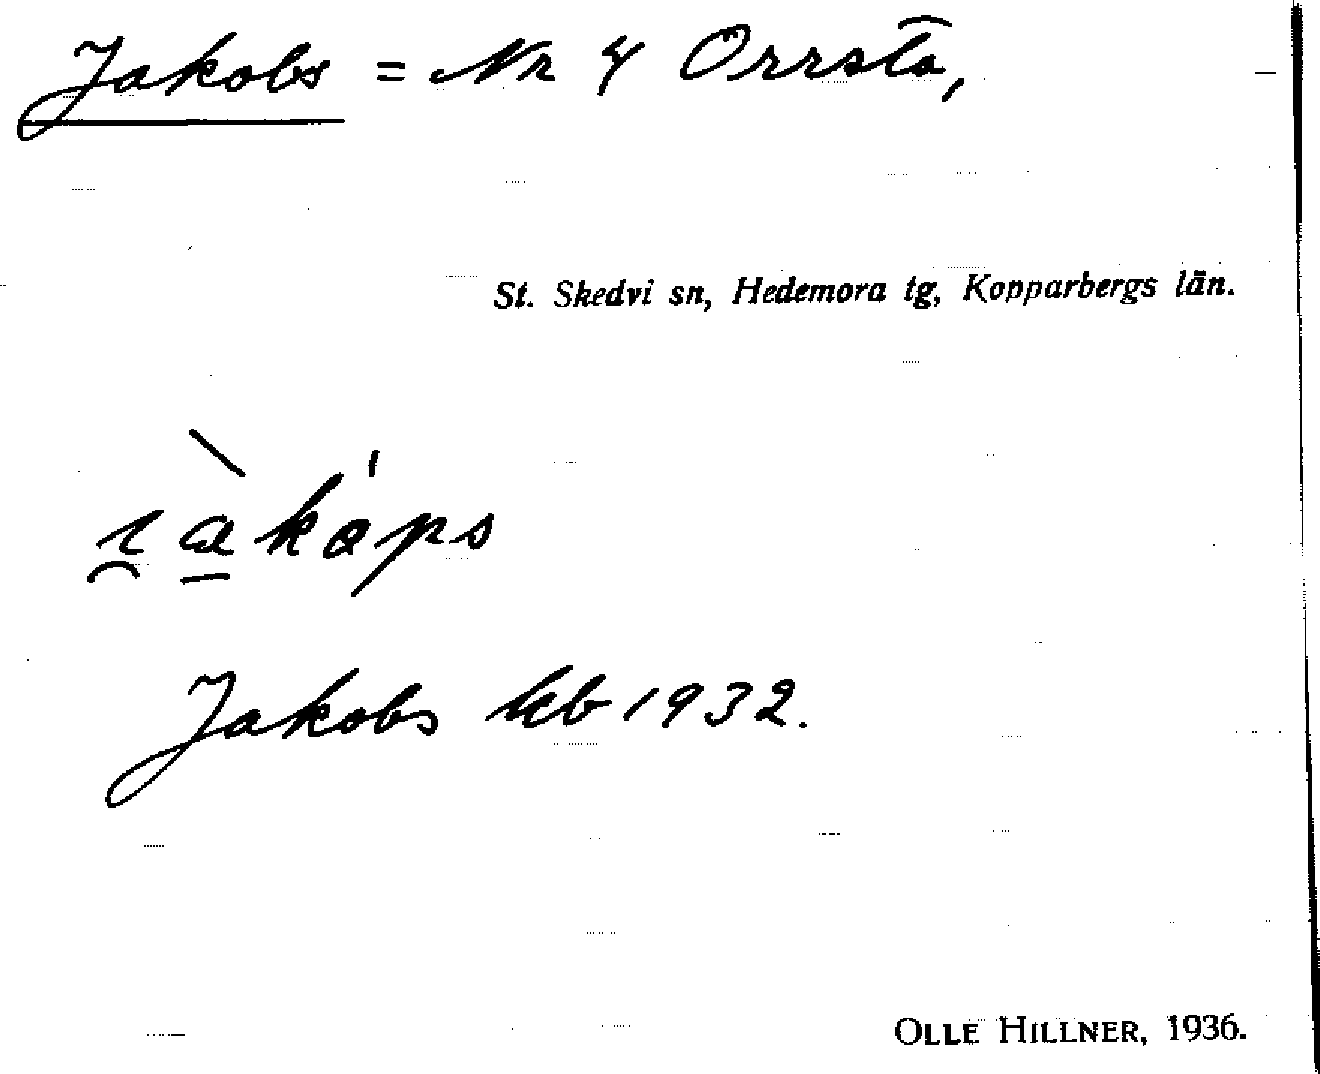 Jakobs = Nr 4 Orrsta,
St. Skedvi sn, Hedemora tg, Kopparbergs län.
ı̯à̱káps
Jakobs kb 1932.
OLLE HILLNER, 1936.